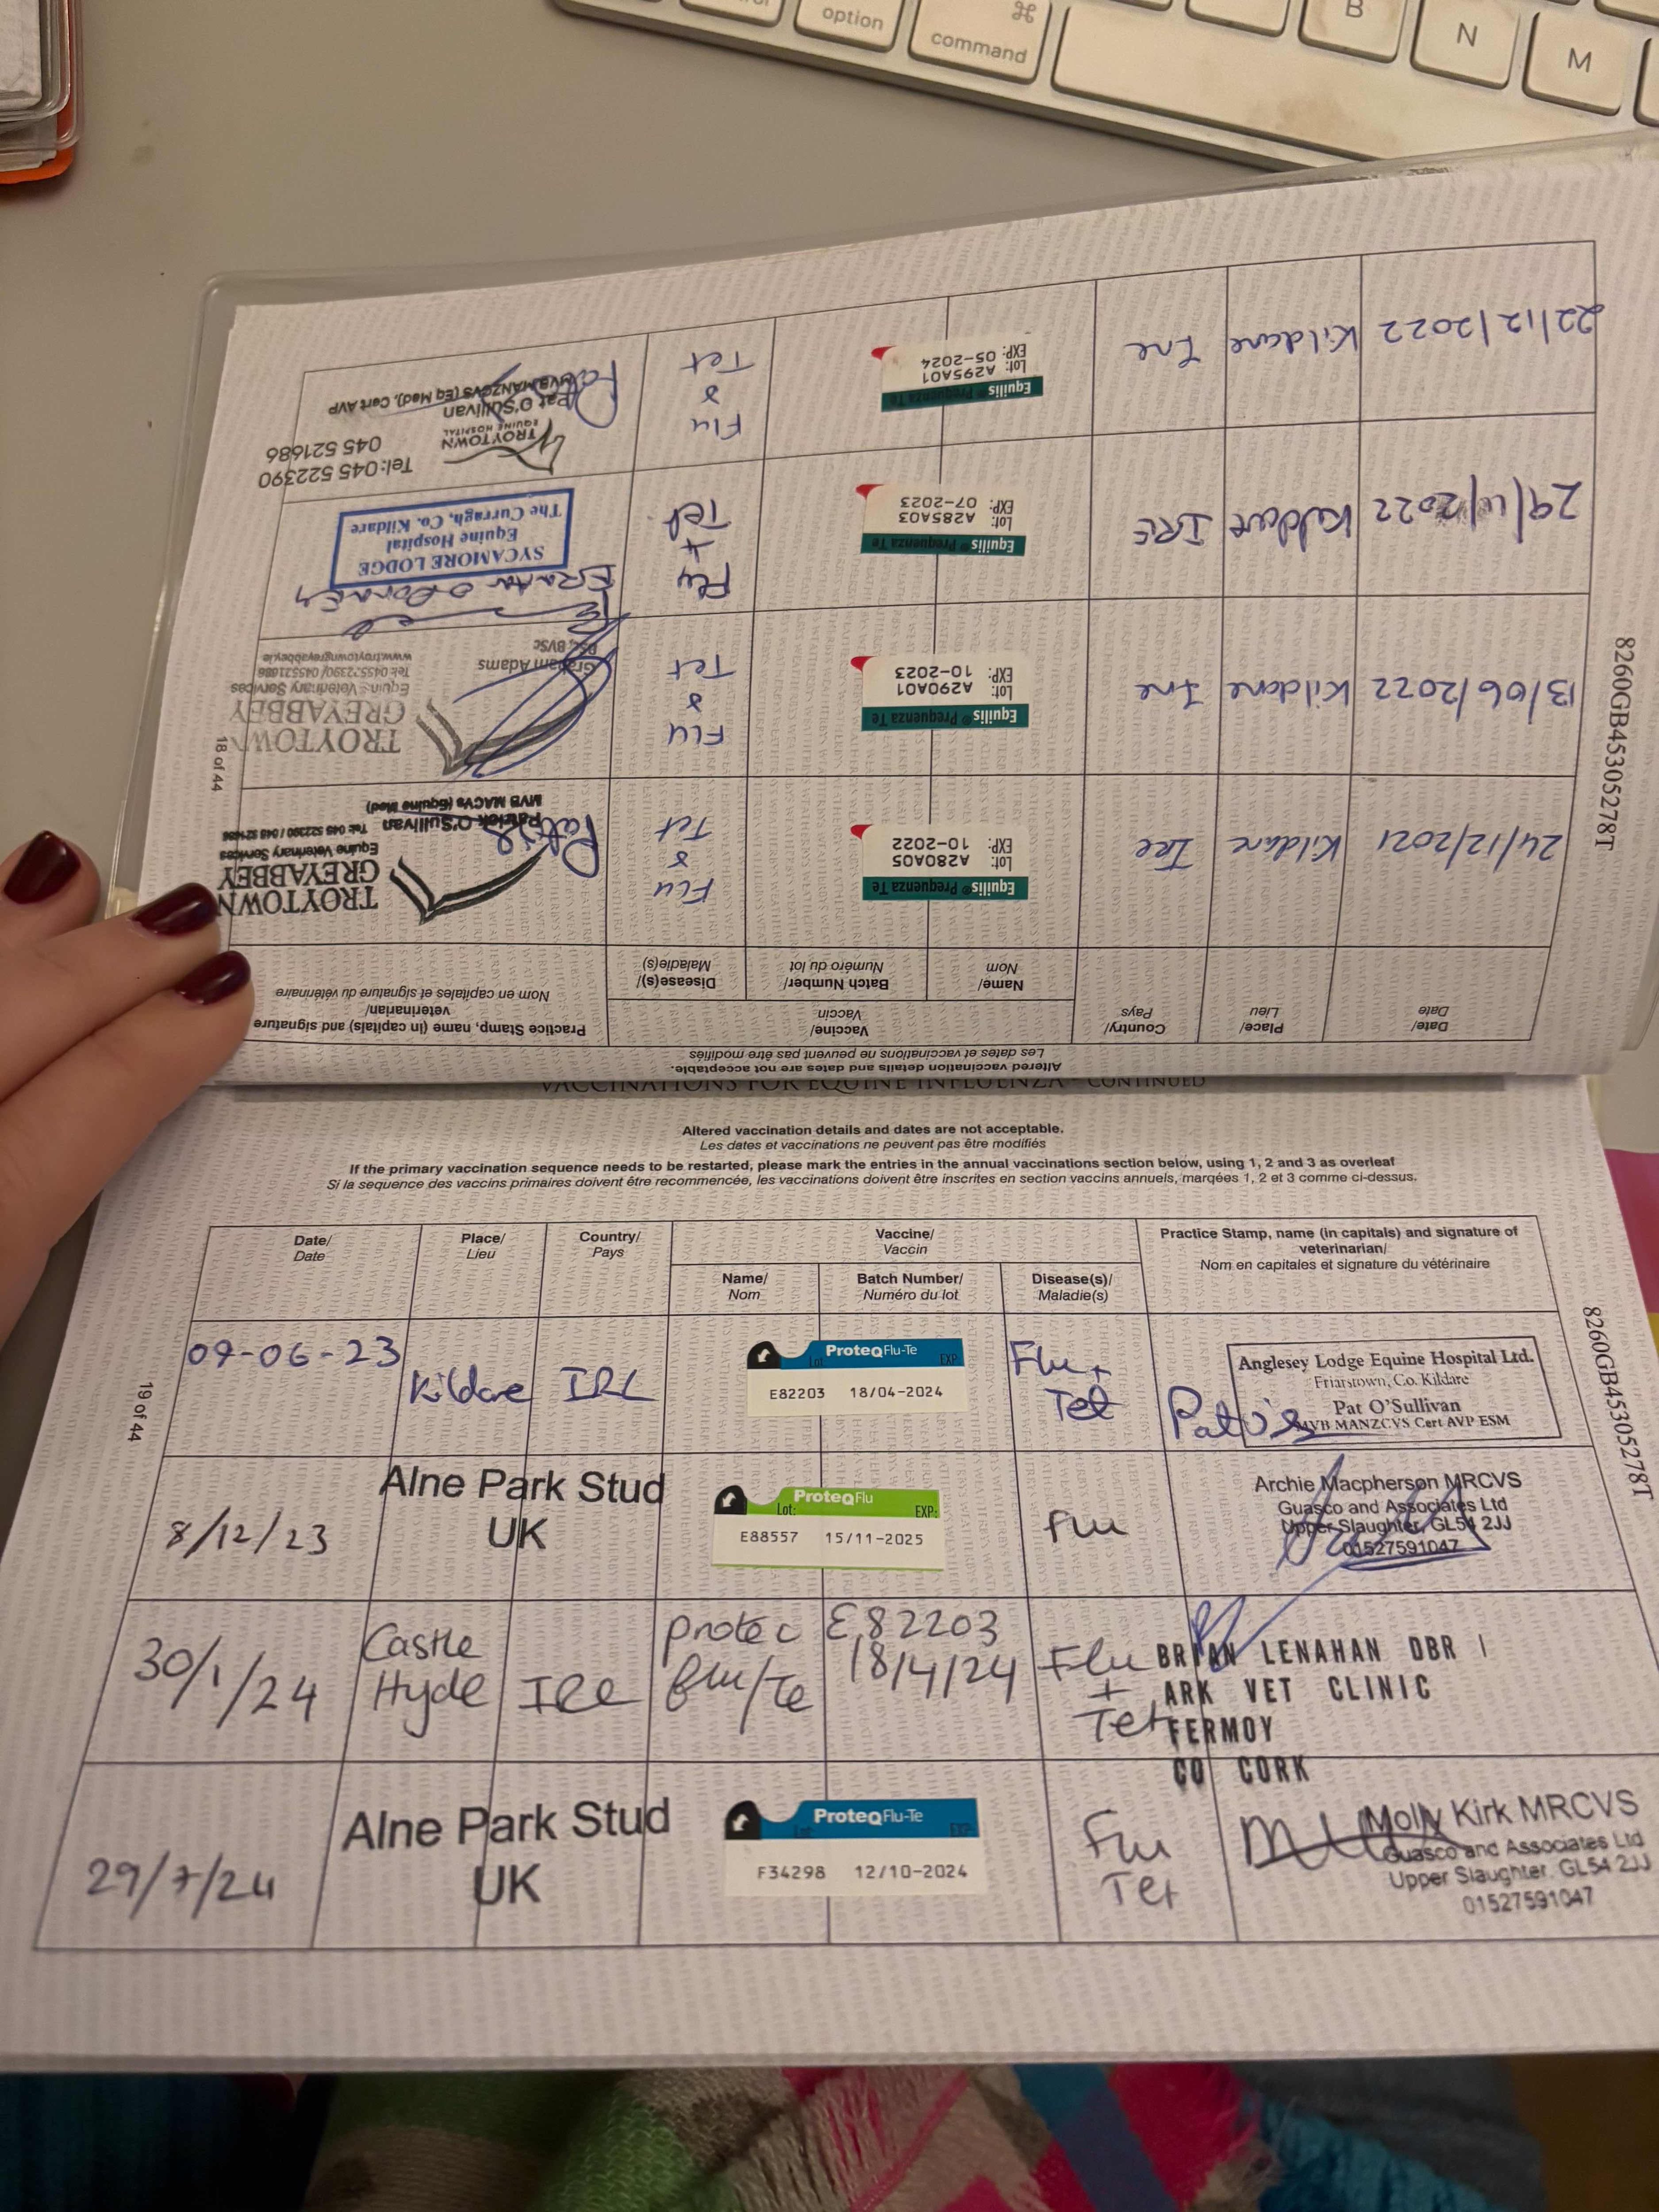 option
command
⌘
B
N
M
8260GB45305278T
18 of 44
Altered vaccination details and dates are not acceptable.
Les dates et vaccinations ne peuvent pas être modifiés
Date/
Date
Place/
Lieu
Country/
Pays
Vaccine/
Vaccin
Name/
Nom
Batch Number/
Numéro du lot
Disease(s)/
Maladie(s)
Practice Stamp, name (in capitals) and signature
veterinarian/
Nom en capitales et signature du vétérinaire
24/12/2021
Kildare
Ire
Equilis® Prequenza Te
Lot: A280A05
EXP: 10-2022
Flu
&
Tet
TROYTOWN
GREYABBEY
Equine Veterinary Services
Tel: 045 522390 / 045 521686
Patrick O'Sullivan
MVB MACVs (Equine Med)
13/06/2022
Kildare
Ire
Equilis® Prequenza Te
Lot: A290A01
EXP: 10-2023
Flu
&
Tet
TROYTOWN
GREYABBEY
Equine Veterinary Services
Tel: 045522390/ 045521686
www.troytowngreyabbey.ie
Graham Adams
BSc, BVSc
2022
Kildare
IRE
Equilis® Prequenza Te
Lot: A285A03
EXP: 07-2023
Flu
+
Tet
SYCAMORE LODGE
Equine Hospital
The Curragh, Co. Kildare
22/12/2022
Kildare
Ire
Equilis® Prequenza Te
Lot: A295A01
EXP: 05-2024
Flu
&
Tet
TROYTOWN
EQUINE HOSPITAL
Tel:045 522390
045 521686
Pat O'Sullivan
MVB MANZCVS (Eq Med), Cert AVP
VACCINATIONS FOR EQUINE INFLUENZA - CONTINUED
Altered vaccination details and dates are not acceptable.
Les dates et vaccinations ne peuvent pas être modifiés
If the primary vaccination sequence needs to be restarted, please mark the entries in the annual vaccinations section below, using 1, 2 and 3 as overleaf
Si la sequence des vaccins primaires doivent être recommencée, les vaccinations doivent être inscrites en section vaccins annuels, marqées 1, 2 et 3 comme ci-dessus.
Date/
Date
Place/
Lieu
Country/
Pays
Vaccine/
Vaccin
Name/
Nom
Batch Number/
Numéro du lot
Disease(s)/
Maladie(s)
Practice Stamp, name (in capitals) and signature of
veterinarian/
Nom en capitales et signature du vétérinaire
8260GB45305278T
19 of 44
-06-23
Kildare
IRL
ProteqFlu-Te
Lot: EXP:
E82203 18/04-2024
Flu +
Tet
Anglesey Lodge Equine Hospital Ltd.
Friarstown, Co. Kildare
Pat O'Sullivan
MVB MANZCVS Cert AVP ESM
8/12/23
Alne Park Stud
UK
ProteqFlu
Lot: EXP:
E88557 15/11-2025
Flu
Archie Macpherson MRCVS
Guasco and Associates Ltd
Upper Slaughter, GL54 2JJ
01527591047
30/1/24
Castle
Hyde
Ire
Protec
flu/Te
E82203
18/4/24
Flu
+
Tet
BRIAN LENAHAN DBR I
ARK VET CLINIC
FERMOY
CO CORK
29/7/24
Alne Park Stud
UK
ProteqFlu-Te
Lot: EXP:
F34298 12/10-2024
Flu
Tet
Molly Kirk MRCVS
Guasco and Associates Ltd
Upper Slaughter, GL54 2JJ
01527591047